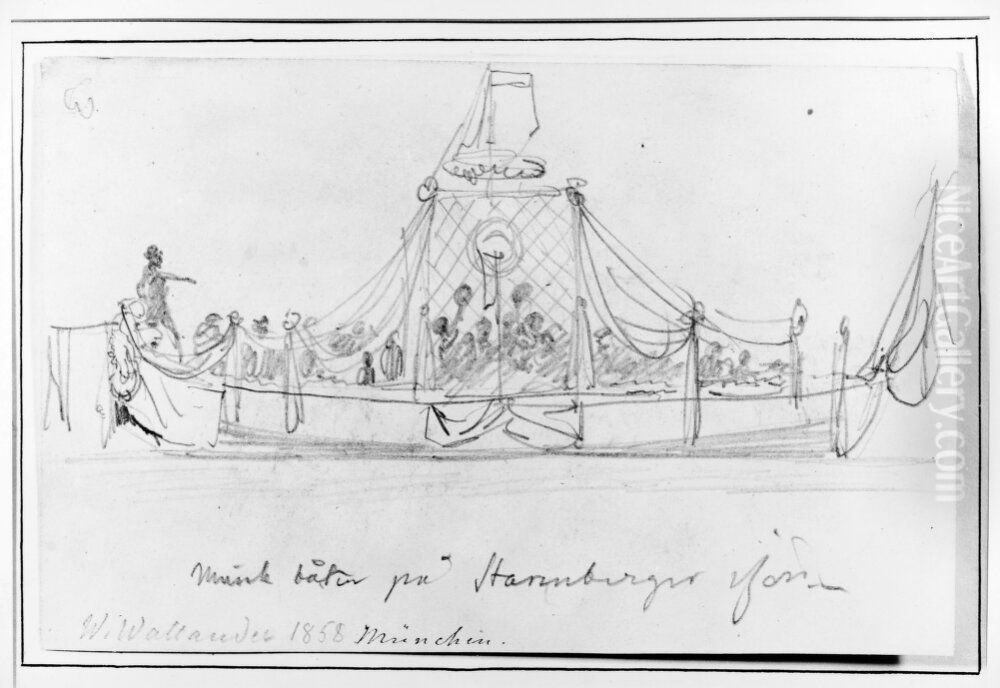 Musik båten på Starnberger sjön
W. Wallander 1858 München.
NiceArtGallery.com